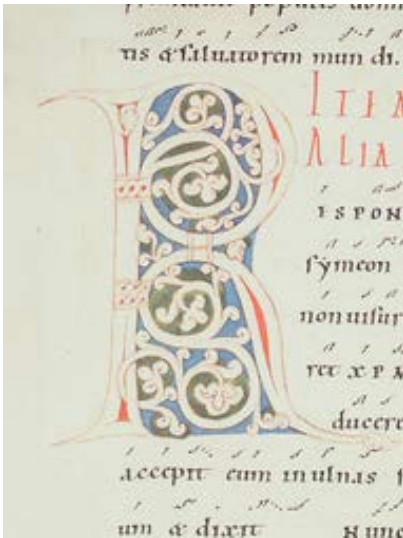 populus domi
tis & saluatorem mun di.
ITEM
ALIA
R
ESPON
symeon
non uisur
ret XPM
ducere
accepit eum in ulnas
um & dixit Nunc